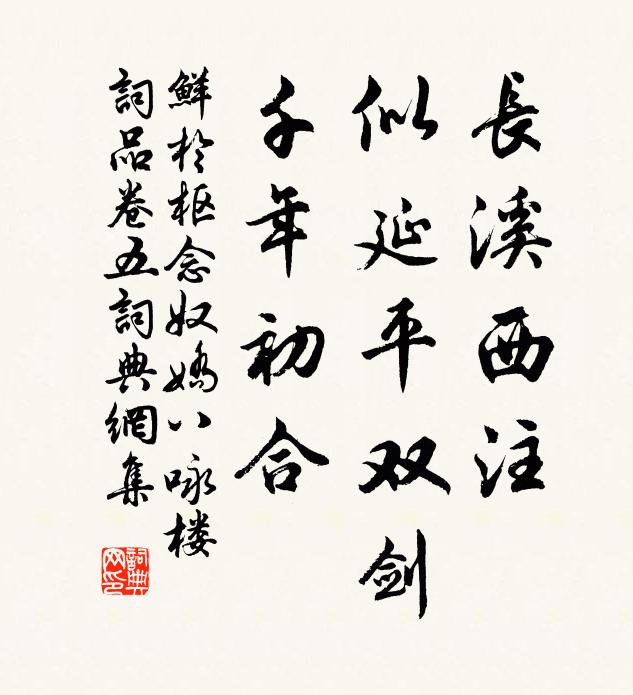 長溪西注
似延平双剑
千年初合
鮮於枢念奴嬌八咏楼
詞品卷五詞典網集
詞典网印